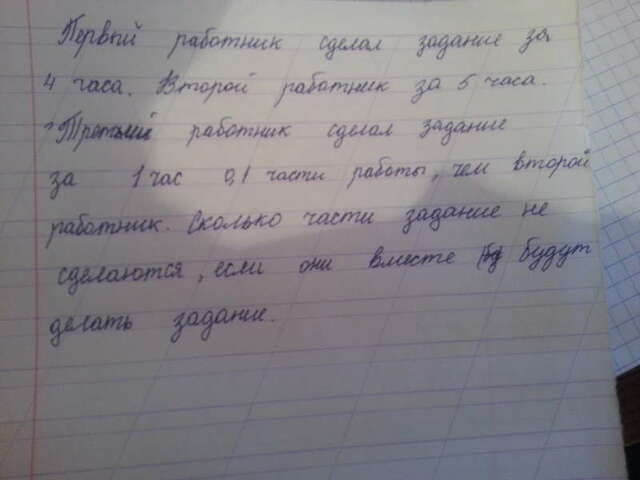 Первый работник сделал задание за
4 часа. Второй работник за 5 часа.
Третий работник сделал задание
за 1 час 0,1 части работы, чем второй
работник. Сколько части задание не
сделаются, если они вместе будут
делать задание.